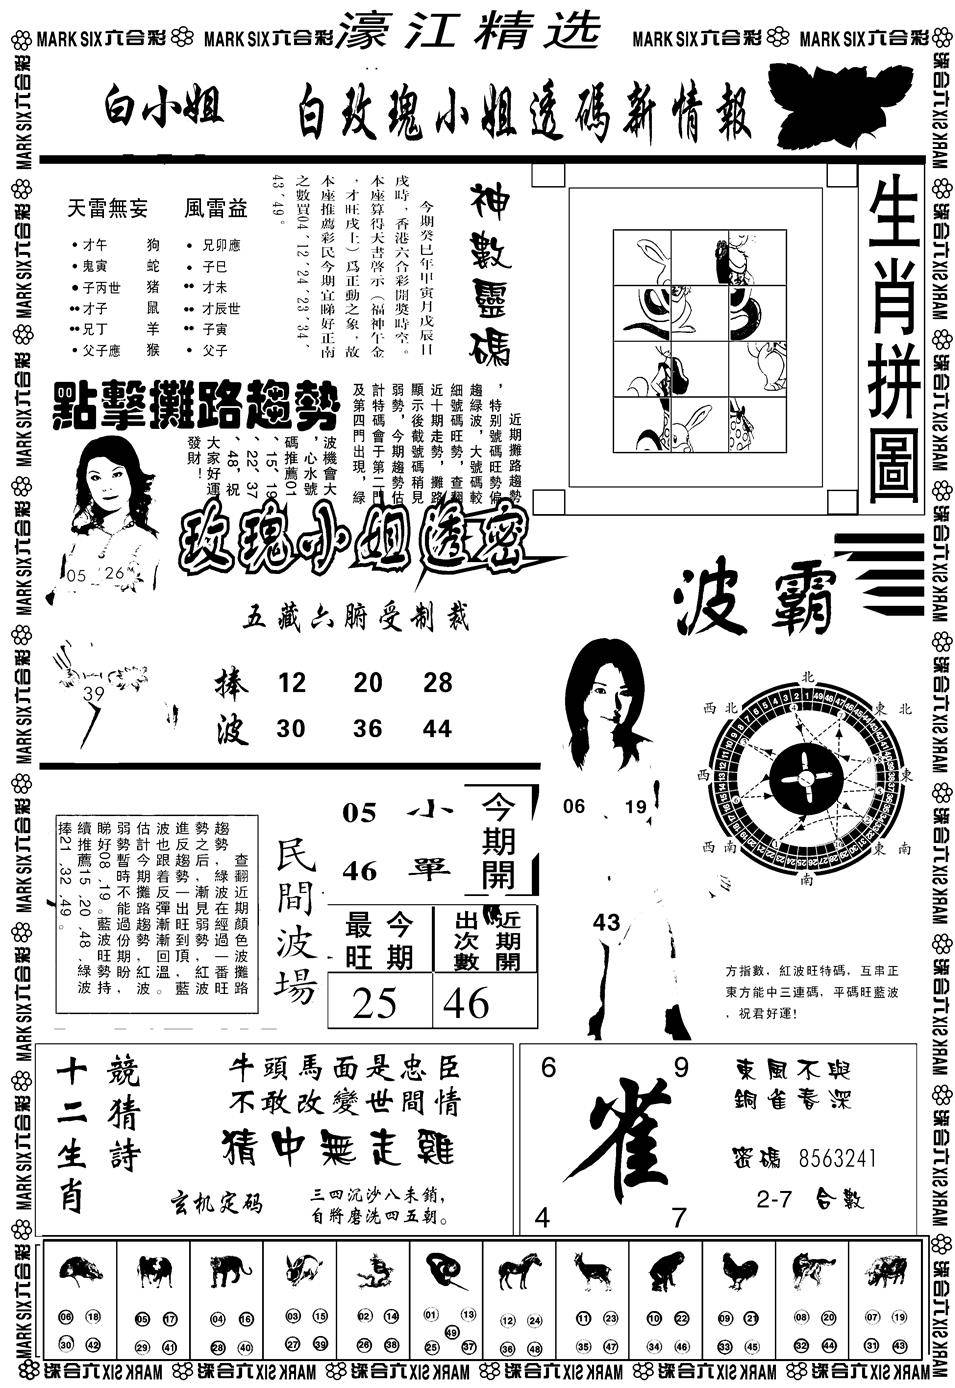 MARK SIX六合彩 MARK SIX六合彩 濠江精选 MARK SIX六合彩 MARK SIX六合彩
白小姐 白玫瑰小姐透碼新情報
天雷無妄 風雷益
才午 狗 兄卯應
鬼寅 蛇 子巳
子丙世 豬 才未
才子 鼠 才辰世
兄丁 羊 子寅
父子應 猴 父子
神數靈碼
今期癸巳年甲寅月戊辰日
戌時，香港六合彩開獎時空。
本座算得天書啓示（福神午金
，才旺戌上）爲正動之象，故
本座推薦彩民今期宜睇好正南
之數買04、12、24、23、34、
43、49。
生肖拼圖
點擊攤路趨勢
近期攤路趨勢
，特別號碼旺勢偏
趨綠波，大號碼較
細號碼旺勢，查翻
近十期走勢，攤路
顯示後截號碼稍見
弱勢，今期趨勢估
計特碼會于第二門
及第四門出現，綠
波機會大
，心水號
碼推薦01
、15、19
、22、37
、48，祝
大家好運
發財！
玫瑰小姐透密
05 26
39
五藏六腑受制裁
捧 12 20 28
波 30 36 44
波霸
06 19
43
北
西北 東北
西 東
西南 東南
南
方指數，紅波旺特碼，互串正
東方能中三連碼，平碼旺藍波
，祝君好運！
民間波場
查翻近期顏色波攤路
趨勢，綠波在經過一番旺
勢之后，漸見弱勢，紅波
進反趨勢一出旺到頂，藍
波也跟着反彈漸漸回溫。
估計今期攤路趨勢紅波
弱勢暫時不能過份期盼，
睇好08、19。藍波旺勢持
續推薦15、20、48、綠波
捧21、32、49。
05 小
46 單
今期開
今期最旺
近期開出次數
25
46
競猜詩
十二生肖
牛頭馬面是忠臣
不敢改變世間情
猜中無走雞
玄机定码
三四沉沙八未銷，
自將磨洗四五朝。
6 9
雀
4 7
東風不與
銅雀春深
密碼 8563241
2-7 合數
06 18 30 42
05 17 29 41
04 16 28 40
03 15 27 39
02 14 26 38
01 13 49 25 37
12 24 36 48
11 23 35 47
10 22 34 46
09 21 33 45
08 20 32 44
07 19 31 43
MARK SIX六合彩 MARK SIX六合彩 MARK SIX六合彩 MARK SIX六合彩 MARK SIX六合彩 MARK SIX六合彩